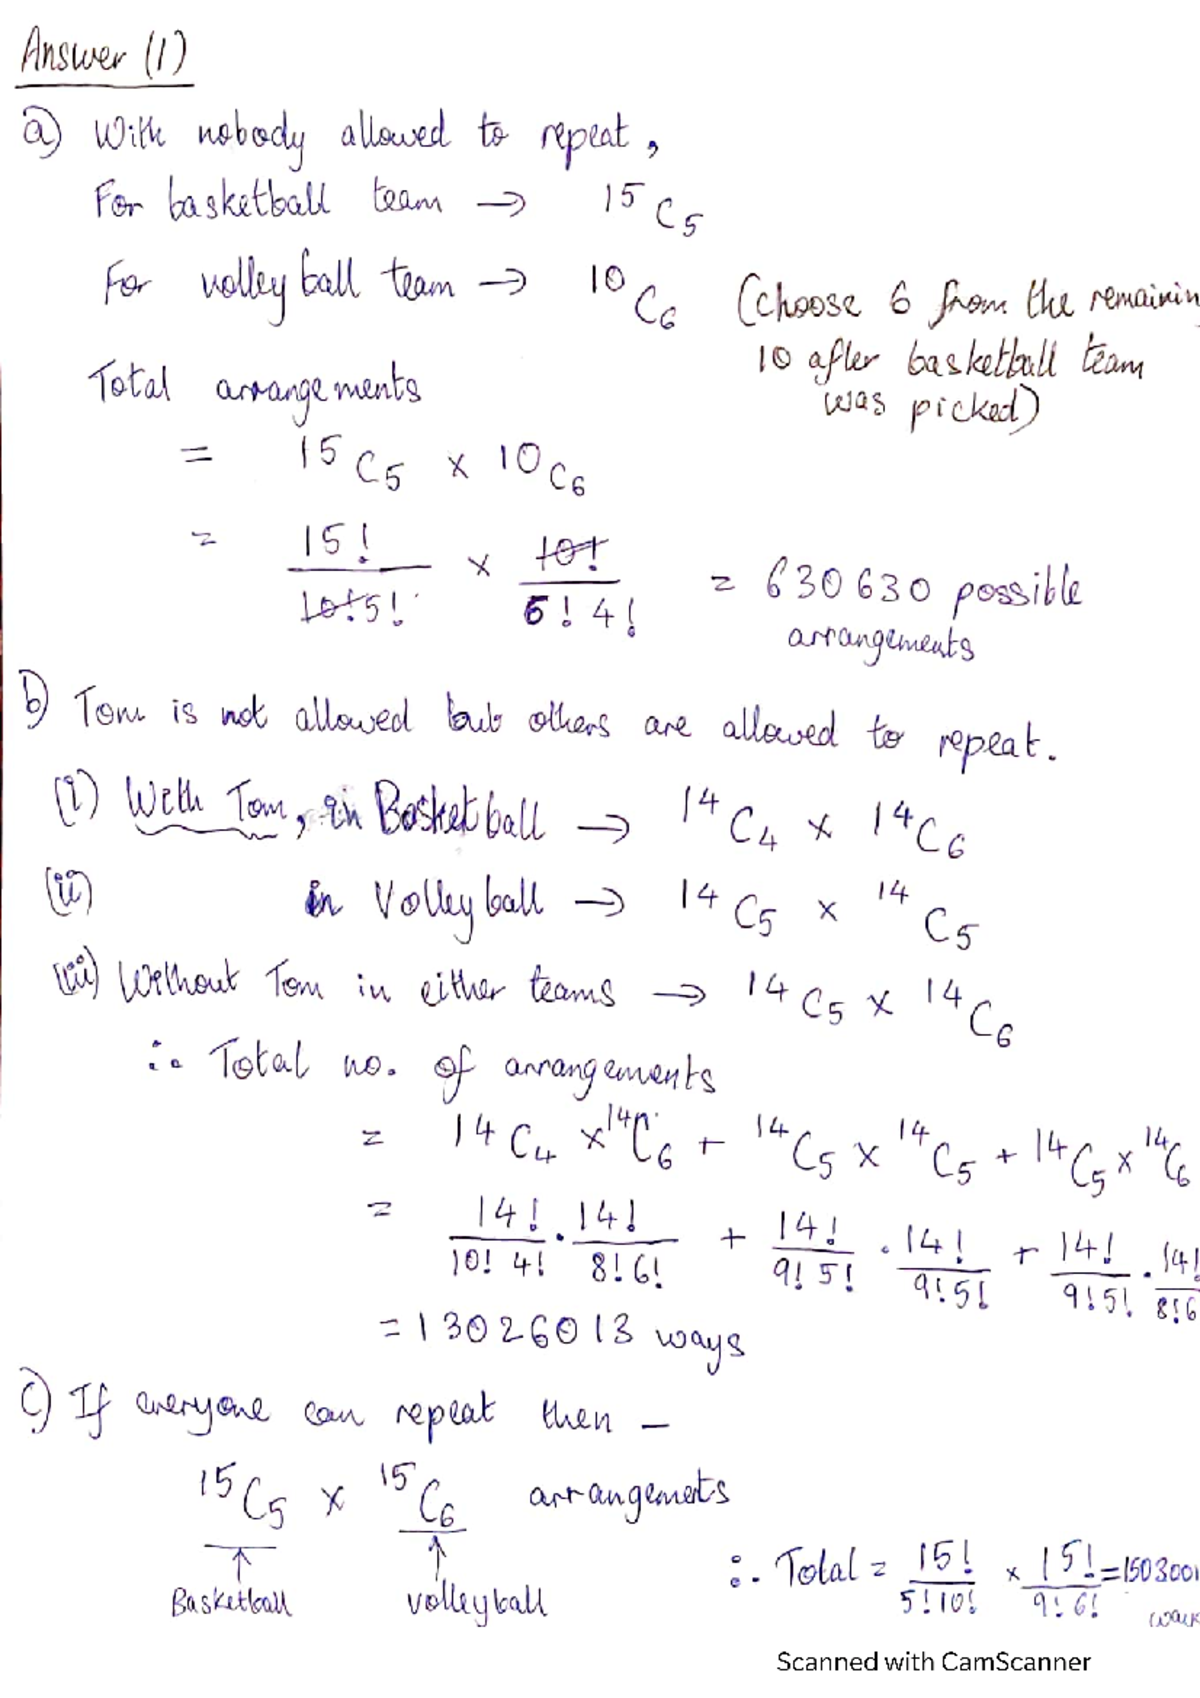 Answer (1)
a) With nobody allowed to repeat,
For basketball team → 15C5
For volleyball team → 10C6 (choose 6 from the remainin
10 after basketball team
was picked)
Total arrangements
= 15C5 × 10C6
= 15!/10!5! × 10!/6!4! = 630630 possible
arrangements
b) Tom is not allowed but others are allowed to repeat.
(i) With Tom, in Basketball → 14C4 × 14C6
(ii) in Volleyball → 14C5 × 14C5
(iii) Without Tom in either teams → 14C5 × 14C6
∴ Total no. of arrangements
= 14C4 × 14C6 + 14C5 × 14C5 + 14C5 × 14C6
= 14!/10!4! . 14!/8!6! + 14!/9!5! . 14!/9!5! + 14!/9!5! . 14!/8!6
= 13026013 ways
c) If everyone can repeat then –
15C5 × 15C6 arrangements
↑ ↑
Basketball volleyball
∴ Total = 15!/5!10! × 15!/9!6! = 1503001
Scanned with CamScanner